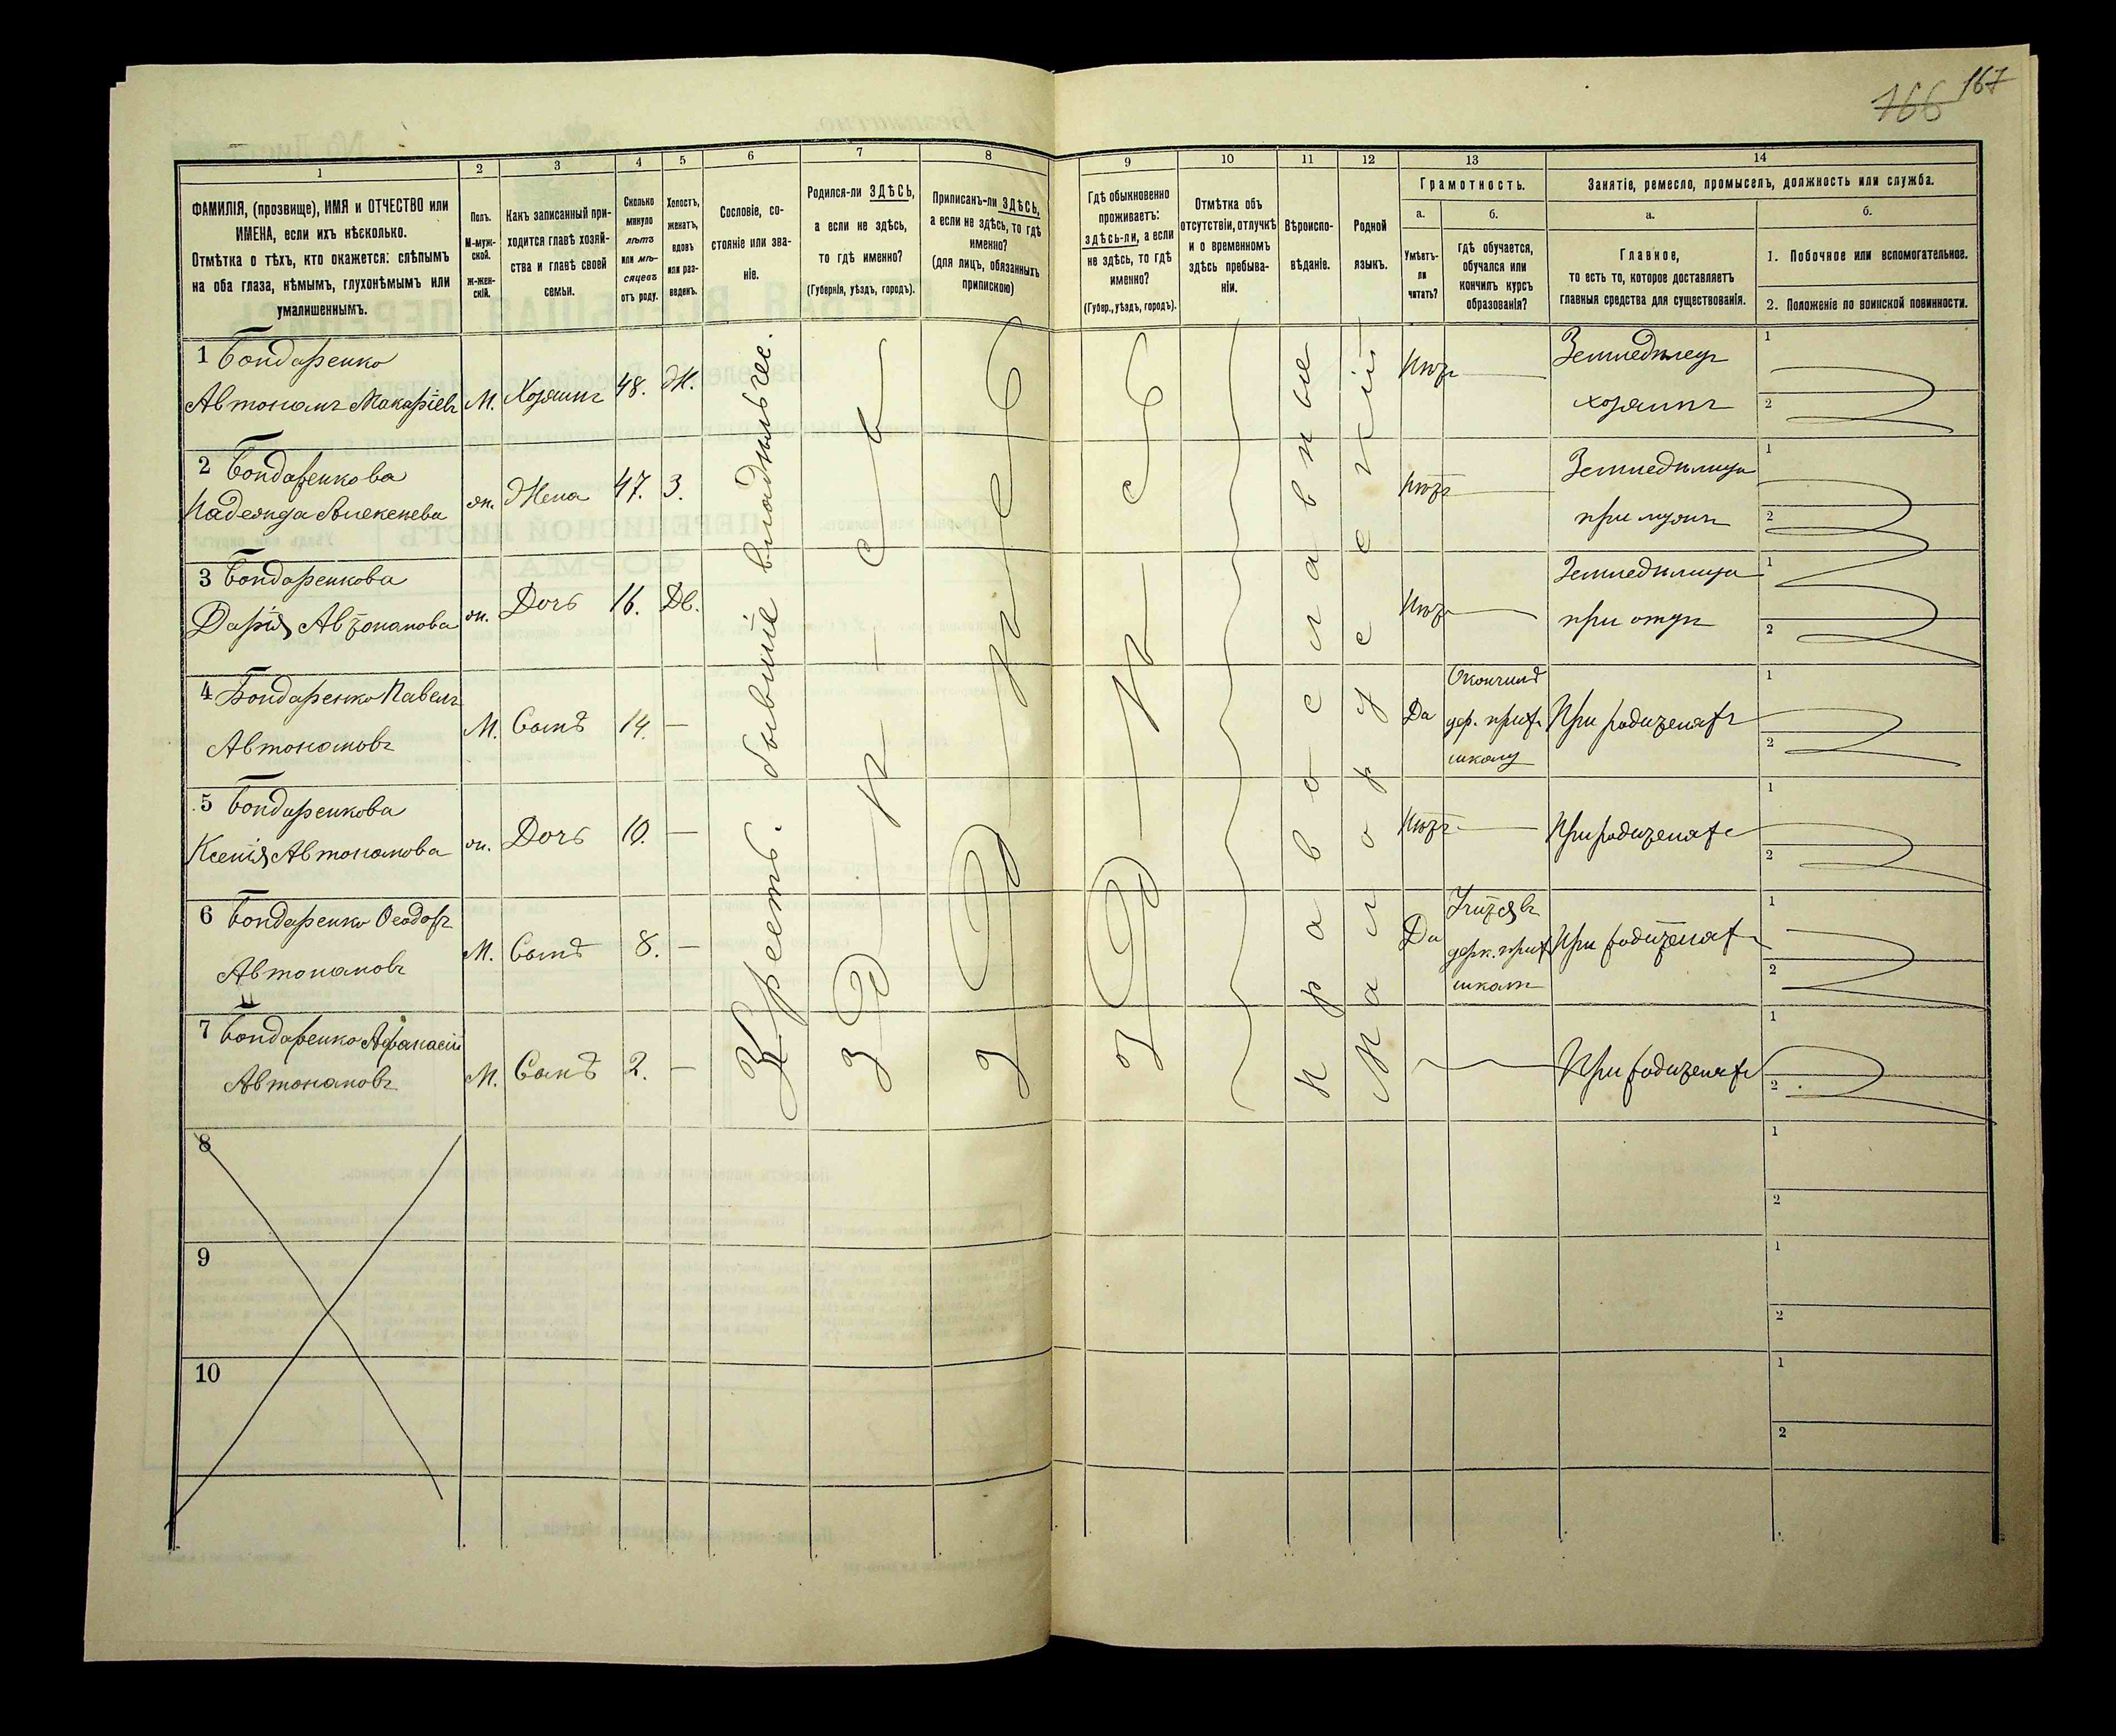 166 167
1 2 3 4 5 6 7 8 9 10 11 12 13 14
ФАМИЛІЯ, (прозвище), ИМЯ и ОТЧЕСТВО или
ИМЕНА, если ихъ нѣсколько.
Отмѣтка о тѣхъ, кто окажется: слѣпымъ
на оба глаза, нѣмымъ, глухонѣмымъ или
умалишеннымъ.
Полъ.
М-муж-
ской.
Ж-жен-
скій.
Какъ записанный при-
ходится главѣ хозяй-
ства и главѣ своей
семьи.
Сколько
минуло
лѣтъ
или мѣ-
сяцевъ
отъ роду.
Холостъ,
женатъ,
вдовъ
или раз-
веденъ.
Сословіе, со-
стояніе или зва-
ніе.
Родился-ли ЗДѢСЬ,
а если не здѣсь,
то гдѣ именно?
(Губернія, уѣздъ, городъ).
Приписанъ-ли ЗДѢСЬ,
а если не здѣсь, то гдѣ
именно?
(для лицъ, обязанныхъ
припискою)
Гдѣ обыкновенно
проживаетъ:
здѣсь-ли, а если
не здѣсь, то гдѣ
именно?
(Губер., уѣздъ, городъ).
Отмѣтка объ
отсутствіи, отлучкѣ
и о временномъ
здѣсь пребыва-
ніи.
Вѣроиспо-
вѣданіе.
Родной
языкъ.
Грамотность.
а.
Умѣетъ-
ли
читать?
б.
Гдѣ обучается,
обучался или
кончилъ курсъ
образованія?
Занятіе, ремесло, промыселъ, должность или служба.
а.
Главное,
то есть то, которое доставляетъ
главныя средства для существованія.
б.
1. Побочное или вспомогательное.
2. Положеніе по воинской повинности.
1 Бондаренко
Автономъ Макаріевъ М. Хозяинъ 48. Ж. Нѣтъ Земледѣлецъ
хозяинъ
1
2
2 Бондаренкова
Надежда Алексеева ж. Жена 47. З. Нѣтъ Земледѣлица
при мужѣ
1
2
3 Бондаренкова
Дарія Автономова ж. Дочь 16. Дв. Нѣтъ Земледѣлица
при отцѣ
1
2
4 Бондаренко Павелъ
Автономовъ М. Сынъ 14. — Да Окончилъ
цер. прих.
школу При родителяхъ
1
2
5 Бондаренкова
Ксенія Автономова ж. Дочь 10. — Нѣтъ При родителяхъ
1
2
6 Бондаренко Ѳеодоръ
Автономовъ М. Сынъ 8. — Да Учится въ
церк. прих.
школѣ При родителях
1
2
7 Бондаренко Афанасій
Автономовъ М. Сынъ 2. — При родителях
1
2
Крестъ. бывшіе владѣльчес.
здѣсь
здѣсь
здѣсь
православные
Малорусскій
8
1
2
9
1
2
10
1
2